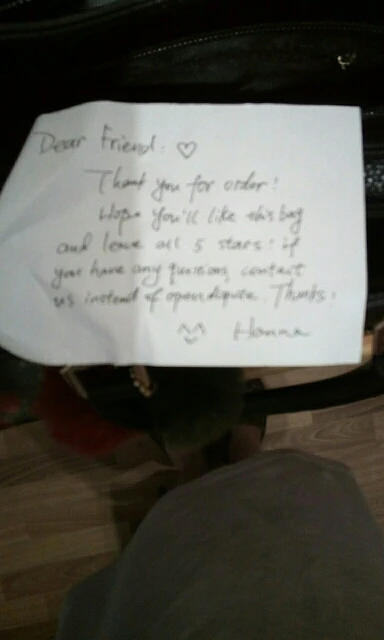 Dear Friend: ♡
Thank you for order!
Hope You'll like this bag
and leave all 5 stars! if
you have any questions, contact
us instead of open dispute. Thanks!
Hanna